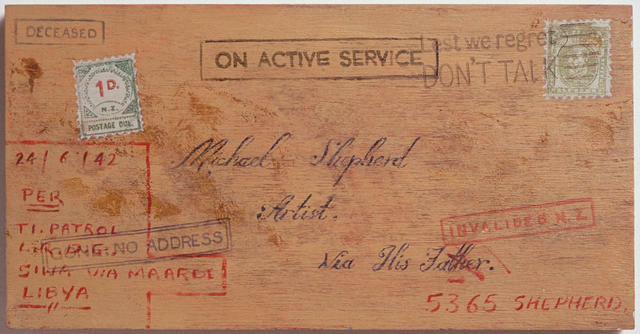 DECEASED
ON ACTIVE SERVICE
Lest we regret
DON'T TALK
1D.
N.Z.
POSTAGE DUE.
Michael Shepherd
Artist.
Via His Father.
24/6/42
PER
T1. PATROL
L.R.D.G.
GONE. NO ADDRESS
SIWA VIA MAARDI
LIBYA
INVALIDED N.Z.
5365 SHEPHERD.